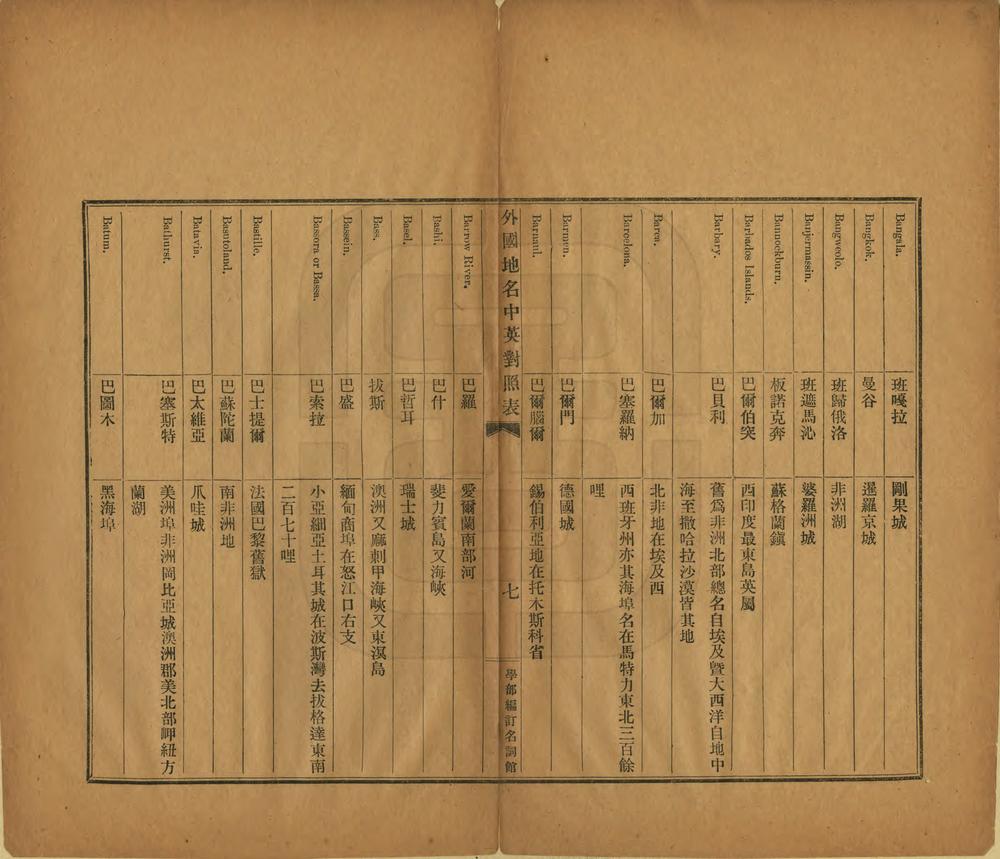 Bangala. 班嘎拉 剛果城
Bangkok. 曼谷 暹羅京城
Bangweolo. 班歸俄洛 非洲湖
Banjermassin. 班遮馬沁 婆羅洲城
Bannockburn. 板諾克奔 蘇格蘭鎭
Barbados Islands. 巴爾伯突 西印度最東島英屬
Barbary. 巴貝利 舊爲非洲北部總名自埃及曁大西洋自地中
海至撒哈拉沙漠皆其地
Barca. 巴爾加 北非地在埃及西
Barcelona. 巴塞羅納 西班牙州亦其海埠名在馬特力東北三百餘
哩
Barmen. 巴爾門 德國城
Barnaul. 巴爾腦爾 錫伯利亞地在托木斯科省
外國地名中英對照表 七 學部編訂名詞館
Barrow River. 巴羅 愛爾蘭南部河
Bashi. 巴什 斐力賓島又海峽
Basel. 巴哲耳 瑞士城
Bass. 拔斯 澳洲又麻刺甲海峽又東溟島
Bassein. 巴盛 緬甸商埠在怒江口右支
Bassora or Bassa. 巴索拉 小亞細亞土耳其城在波斯灣去拔格達東南
二百七十哩
Bastille. 巴士提爾 法國巴黎舊獄
Basutoland. 巴蘇陀蘭 南非洲地
Batavia. 巴太維亞 爪哇城
Bathurst. 巴塞斯特 美洲埠非洲岡比亞城澳洲郡美北部岬紐方
蘭湖
Batum. 巴圖木 黑海埠